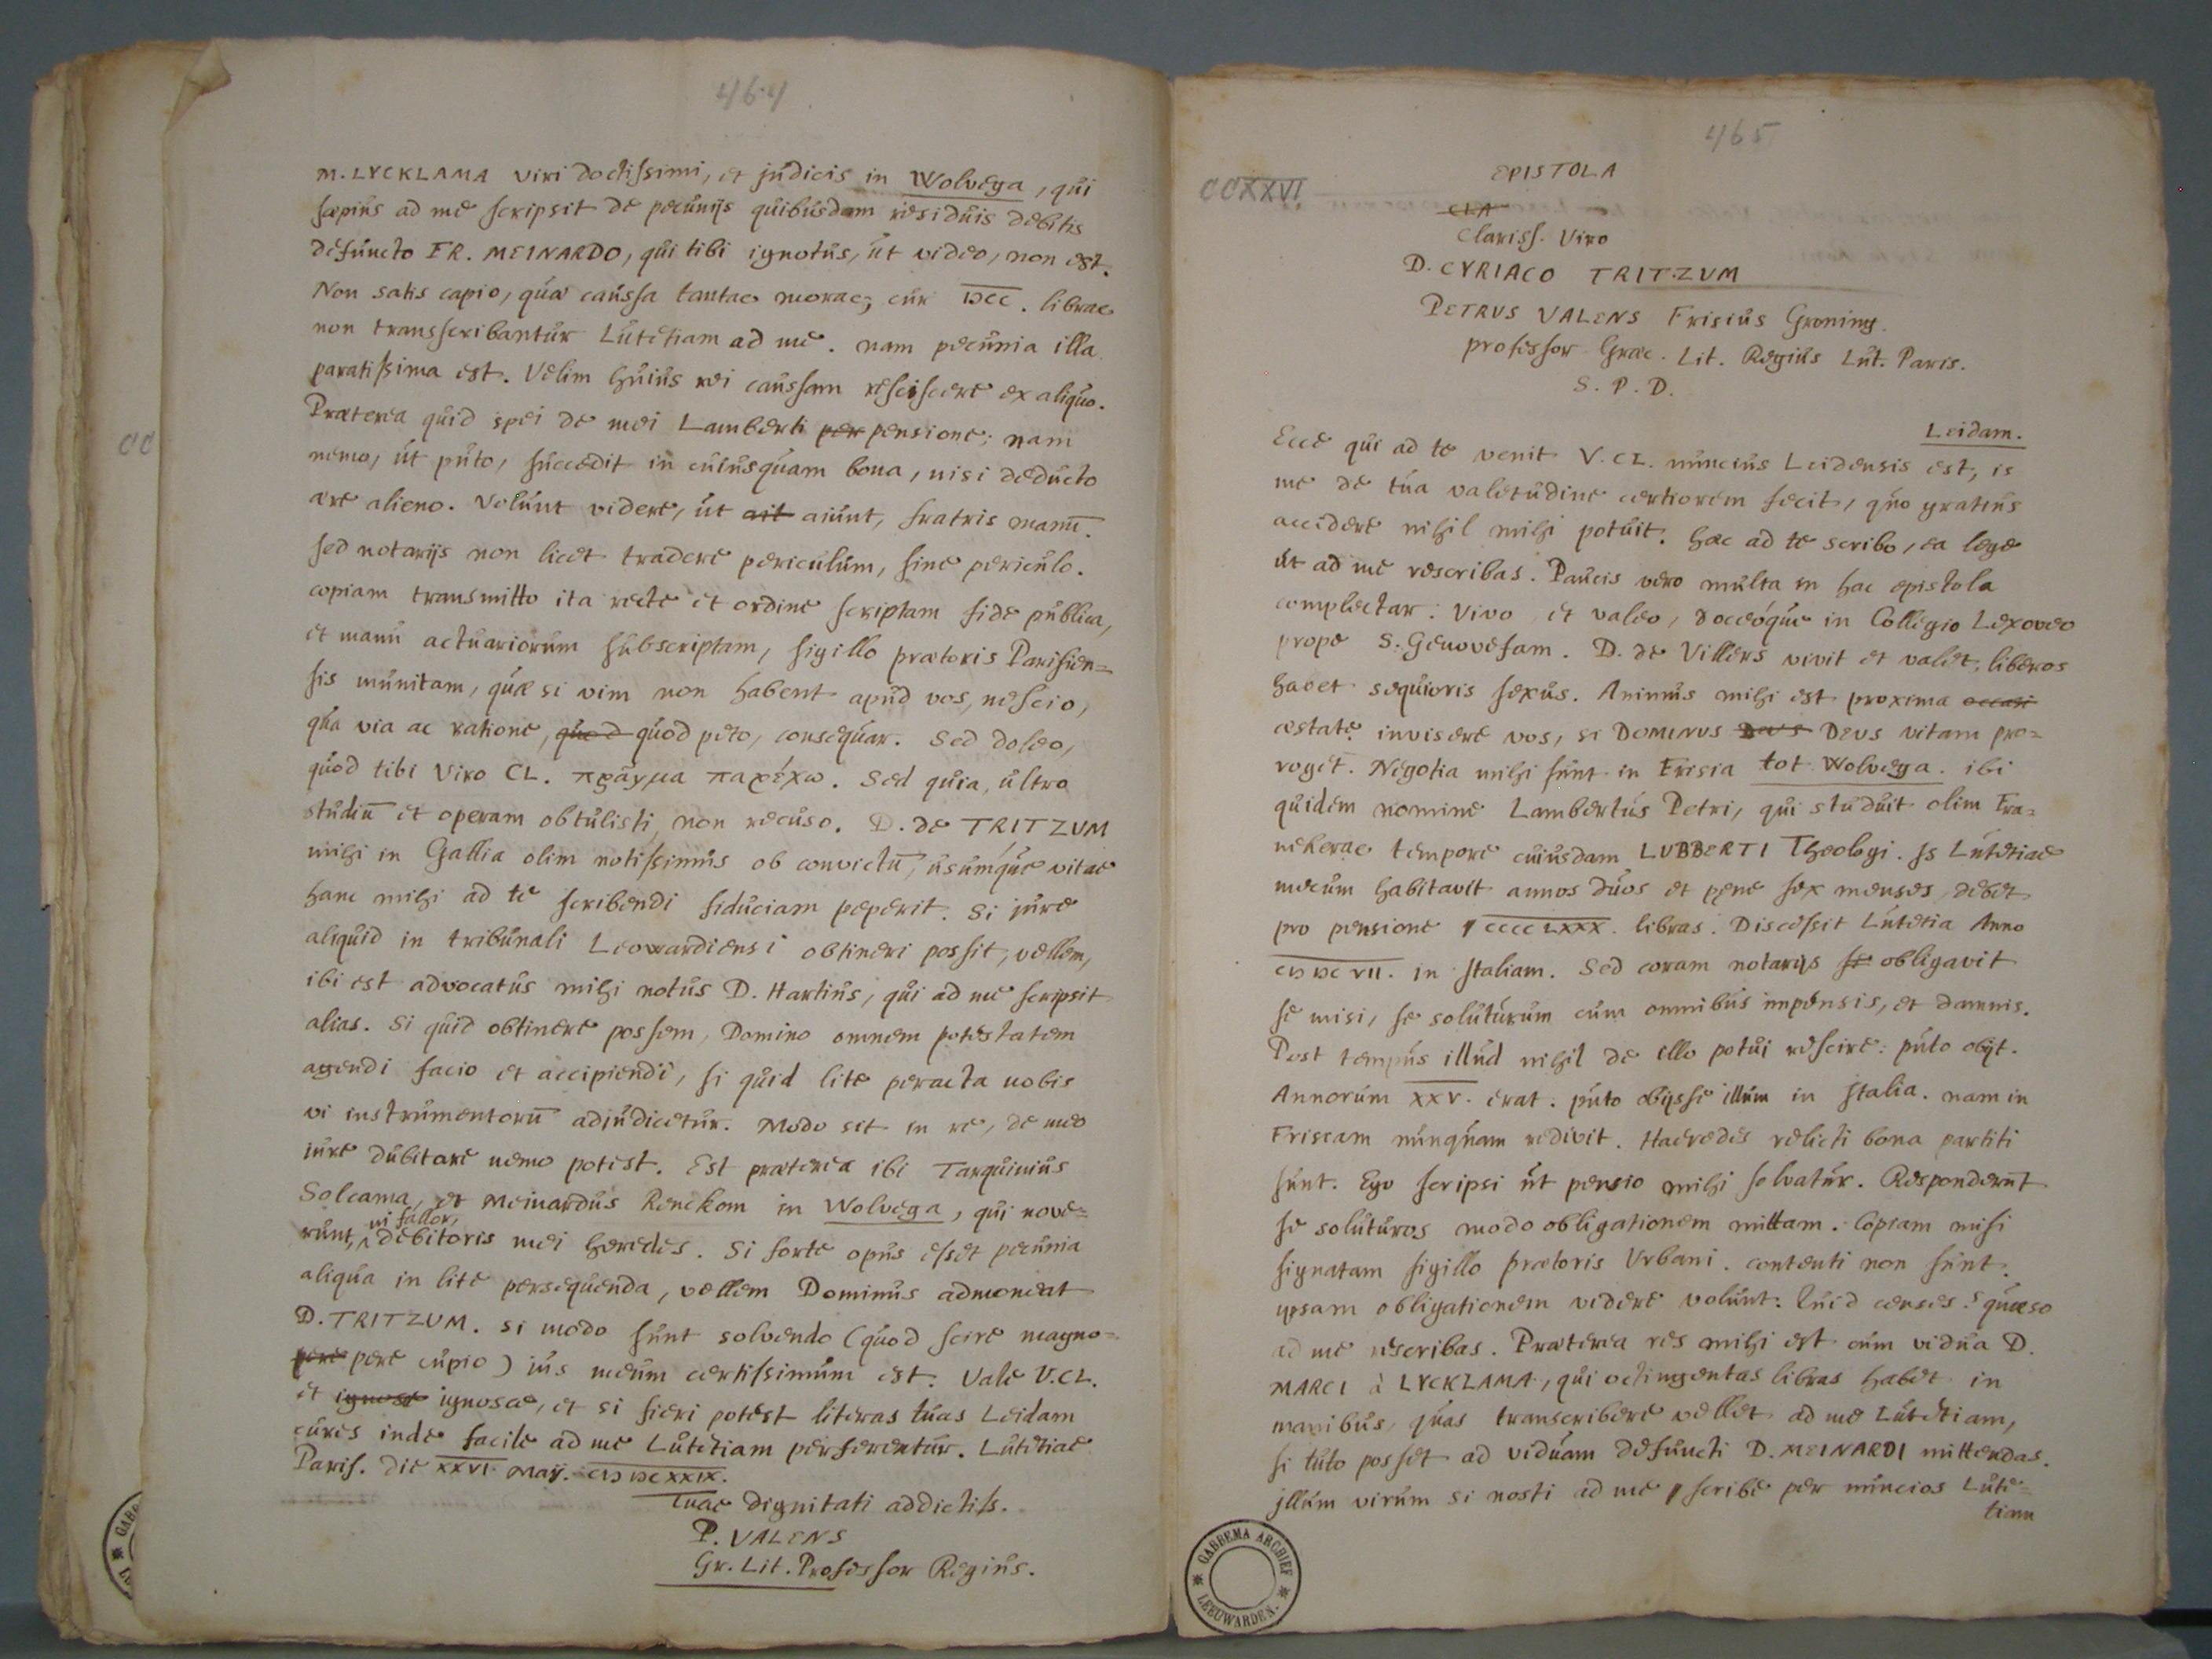 464
M. LYCKLAMA viri doctissimi, et judicis in Wolvega, qui
saepius ad me scripsit de pecunijs quibusdam residuis debitis
defuncto FR. MEINARDO, qui tibi ignotus, ut video, non est.
Non satis capio, quae caussa tantae morae; cur IƆCC. librae
non transscribantur Lutetiam ad me. nam pecunia illa
paratissima est. Velim huius rei caussam resciscere ex aliquo.
Praeterea quid spei de mei Lamberti per pensione; nam
nemo, ut puto, succedit in cuiusquam bona, nisi deducto
aere alieno. Volunt videre, ut ait aiunt, fratris manū.
sed notarijs non licet tradere periculum, sine periculo.
copiam transmitto ita recte et ordine scriptam fide publica,
et manu actuariorum subscriptam, sigillo praetoris Parisien=
sis munitam, quae si vim non habent apud vos, nescio,
qua via ac ratione, quod quod peto, consequar. Sed doleo,
quod tibi Viro CL. πρᾶγμα παρέχω. Sed quia, ultro
studiū et operam obtulisti, non recuso. D. de TRITZUM
mihi in Gallia olim notissimus ob convictū, usumque vitae
hanc mihi ad te scribendi fiduciam peperit. Si jure
aliquid in tribunali Leowardiensi obtineri possit, vellem,
ibi est advocatus mihi notus D. Hartius, qui ad me scripsit
alias. Si quid obtinere possem, Domino omnem potestatem
agendi facio et accipiendi, si quid lite peracta nobis
vi instrumentorū adjudicetur. Modo sit in re, de meo
iure dubitare nemo potest. Est praeterea ibi Tarquinius
Solcama, et Meinardus Renckom in Wolvega, qui nove=
ni fallor,
runt, debitoris mei heredes. Si forte opus esset pecunia
aliqua in lite persequenda, vellem Dominus admoneat
D. TRITZUM. si modo sunt solvendo (quod scire magno=
pere pere cupio) ius meum certissimum est. Vale V.CL.
et ignosce ignosce, et si fieri potest literas tuas Leidam
cures inde facile ad me Lutetiam perferentur. Lutetiae
Paris. die XXVI Maij. CIƆ IƆC XXIX.
Tuae dignitati addictiss.
P. VALENS
Gr. Lit. Professor Regius.
CC
465
CCXXVI
EPISTOLA
CLA
Clariss. Viro
D. CYRIACO TRITZUM
PETRUS VALENS Frisius Groning.
professor Graec. Lit. Regius Lut. Paris.
S. P. D.
Leidam.
Ecce qui ad te venit V. CL. nuncius Leidensis est, is
me de tua valetudine certiorem fecit, quo gratius
accidere nihil mihi potuit. haec ad te scribo, ea lege
ut ad me rescribas. Paucis vero multa in hac epistola
complectar: Vivo et valeo, doceoque in Collegio Lexoveo
prope S. Genovefam. D. de Villers vivit et valet, liberos
habet sequioris sexus. Animus mihi est proxima occasi
aestate invisere vos, si DOMINUS DEUS DEUS vitam pro=
roget. Negotia mihi sunt in Frisia tot Wolvega. ibi
quidem nomine Lambertus Petri, qui studuit olim Fra=
nekerae tempore cuiusdam LUBBERTI Theologi. Is Lutetiae
mecum habitavit annos duos et pene sex menses, debet
pro pensione CCCCLXXX. libras. Discessit Lutetia Anno
CIƆ IƆC VII. in Italiam. Sed coram notarijs se obligavit
se misi, se soluturum cum omnibus impensis, et damnis.
Post tempus illud nihil de illo potui rescire: puto obijt.
Annorum XXV. erat. puto obijsse illum in Italia. nam in
Frisiam nunquam redivit. Haeredes relicti bona partiti
sunt. Ego scripsi ut pensio mihi solvatur. Responderunt
se soluturos modo obligationem mittam. Copiam misi
signatam sigillo praetoris Urbani. contenti non sunt.
ypsam obligationem videre volunt: Quid censes? quaeso
ad me rescribas. Praeterea res mihi est cum vidua D.
MARCI à LYCKLAMA, qui octingentas libras habet in
manibus, quas transcribere vellet ad me Lutetiam,
si tuto posset ad viduam defuncti D. MEINARDI mittendas.
jllum virum si nosti ad me scribe per nuncios Lute=
tiam
GABBEMA ARCHIEF
LEEUWARDEN.